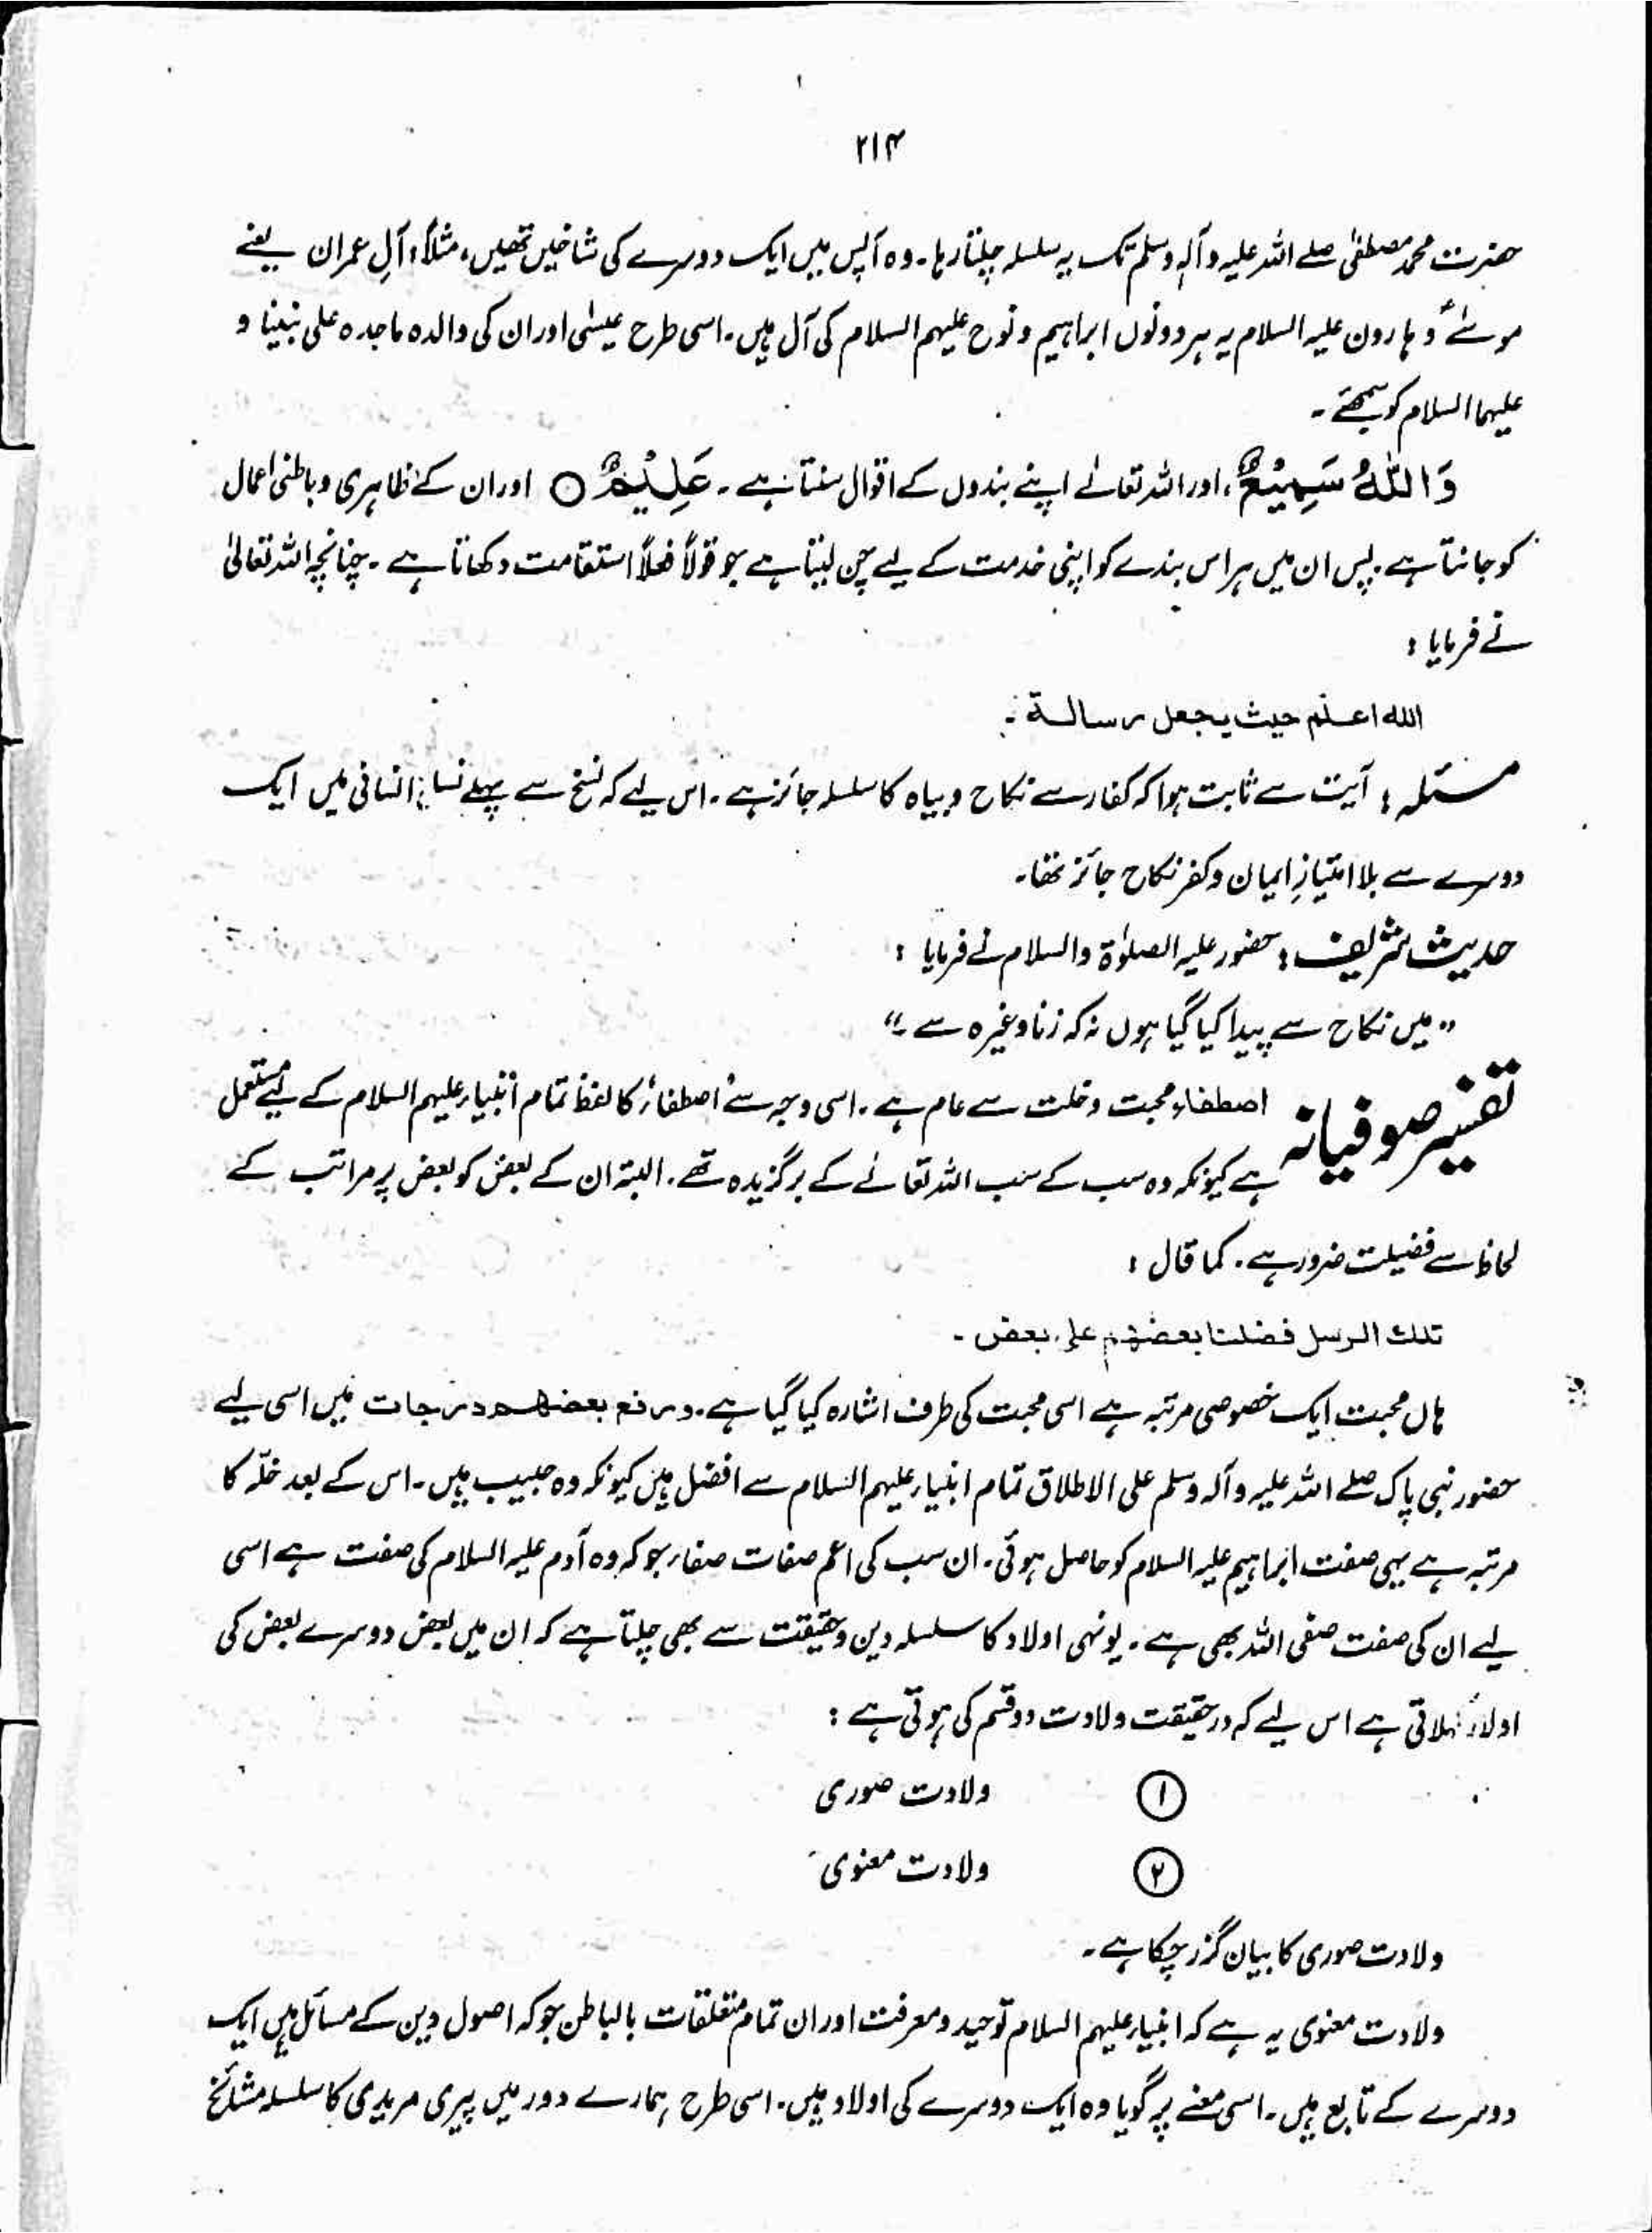 ۲۱۴
حضرت محمد مصطفٰی صلے اللہ علیہ وآلہٖ وسلم تک یہ سلسلہ چلتا رہا۔ وہ آپس میں ایک دوسرے کی شاخیں تھیں، مثلاً، آلِ عمران یعنے
موسٰے و ہارون علیہ السلام یہ ہر دونوں ابراہیم و نوح علیہم السلام کی آل ہیں۔ اسی طرح عیسٰی اور ان کی والدہ ماجدہ علی نبینا و
علیہما السلام کو سمجھئے۔
وَاللّٰهُ سَمِيْعٌ، اور اللہ تعالےٰ اپنے بندوں کے اقوال سنتا ہے۔ عَلِيْمٌ ○ اور ان کے ظاہری و باطنی اعمال
کو جانتا ہے۔ پس ان میں ہر اس بندے کو اپنی خدمت کے لیے چن لیتا ہے جو قولاً فعلاً استقامت دکھاتا ہے۔ چنانچہ اللہ تعالیٰ
نے فرمایا :
الله اعلم حيث يجعل رسالة ۔
مسئلہ : آیت سے ثابت ہوا کہ کفار سے نکاح و بیاہ کا سلسلہ جائز ہے۔ اس لیے کہ نسخ سے پہلے انسانی میں ایک
دوسرے سے بلا امتیازِ ایمان و کفر نکاح جائز تھا۔
حدیث شریف : حضور علیہ الصلوٰۃ والسلام نے فرمایا :
" میں نکاح سے پیدا کیا گیا ہوں نہ کہ زنا وغیرہ سے ۔"
تفسیر صوفیانہ اصطفاء محبت و خلت سے عام ہے۔ اسی وجہ سے اصطفاء کا لفظ تمام انبیاء علیہم السلام کے لیے مستعمل
ہے کیونکہ وہ سب کے سب اللہ تعالےٰ کے برگزیدہ تھے۔ البتہ ان کے بعض کو بعض پر مراتب کے
لحاظ سے فضیلت ضرور ہے۔ کما قال :
تلك الرسل فضلنا بعضهم على بعض ۔
ہاں محبت ایک خصوصی مرتبہ ہے اسی محبت کی طرف اشارہ کیا گیا ہے۔ ورفع بعضهم درجات میں اسی لیے
حضور نبی پاک صلے اللہ علیہ وآلہ وسلم علی الاطلاق تمام انبیاء علیہم السلام سے افضل ہیں کیونکہ وہ حبیب ہیں۔ اس کے بعد خلّہ کا
مرتبہ ہے یہی صفت ابراہیم علیہ السلام کو حاصل ہوئی۔ ان سب کی اعم صفات صفاء جو کہ وہ آدم علیہ السلام کی صفت ہے اسی
لیے ان کی صفت صفی اللہ بھی ہے۔ یونہی اولاد کا سلسلہ دین و حقیقت سے بھی چلتا ہے کہ ان میں بعض دوسرے بعض کی
اولاد کہلاتی ہے اس لیے کہ درحقیقت ولادت دو قسم کی ہوتی ہے :
① ولادت صوری
② ولادت معنوی
ولادت صوری کا بیان گزر چکا ہے۔
ولادت معنوی یہ ہے کہ انبیاء علیہم السلام توحید و معرفت اور ان تمام متعلقات بالباطن جو کہ اصول دین کے مسائل ہیں ایک
دوسرے کے تابع ہیں۔ اسی معنے پر گویا وہ ایک دوسرے کی اولاد ہیں۔ اسی طرح ہمارے دور میں پیری مریدی کا سلسلہ مشائخ